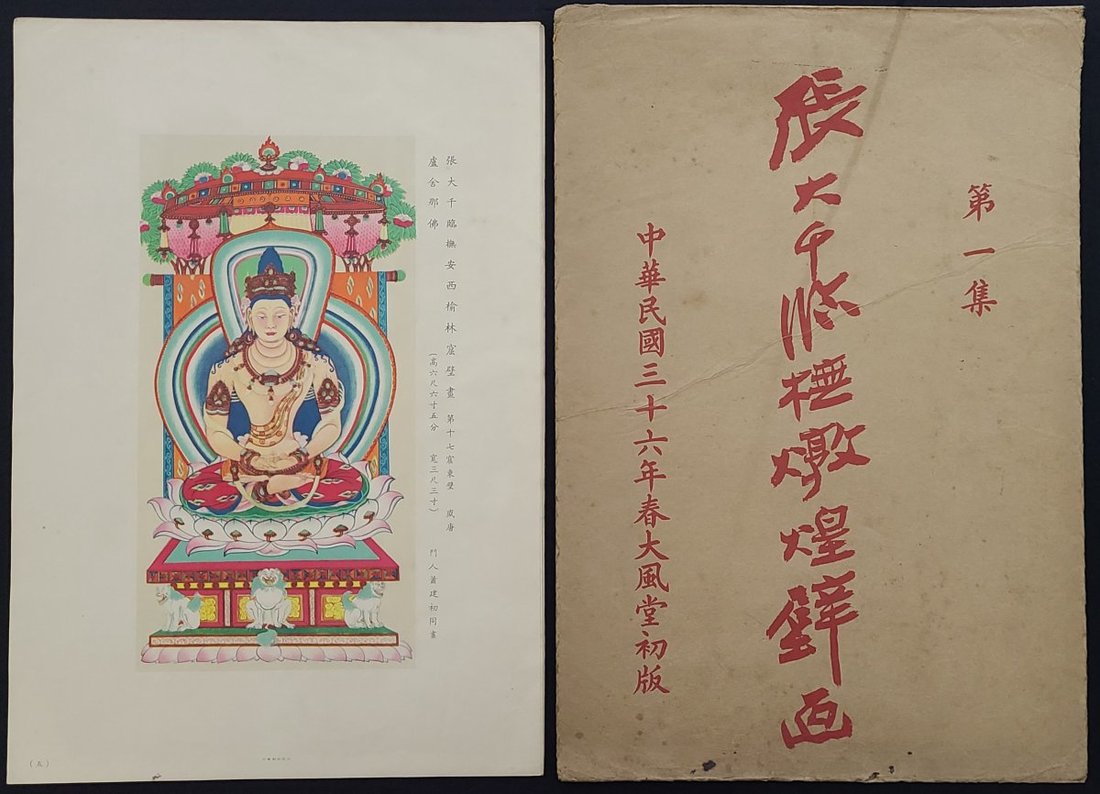 張大千臨橅安西榆林窟壁畫 第十七窟東壁 盛唐 門人蕭建初同畫
盧舍那佛 (高六尺六寸五分 寬三尺三寸)
(五)
第一集
張大千臨橅燉煌壁画
中華民國三十六年春大風堂初版